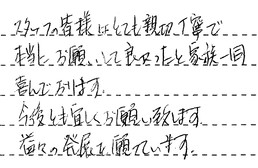 スタッフの皆様はとても親切丁寧で
本当にお願いして良かったと家族一同
喜んでおります。
今後とも宜しくお願い致します。
益々の発展を願っています。